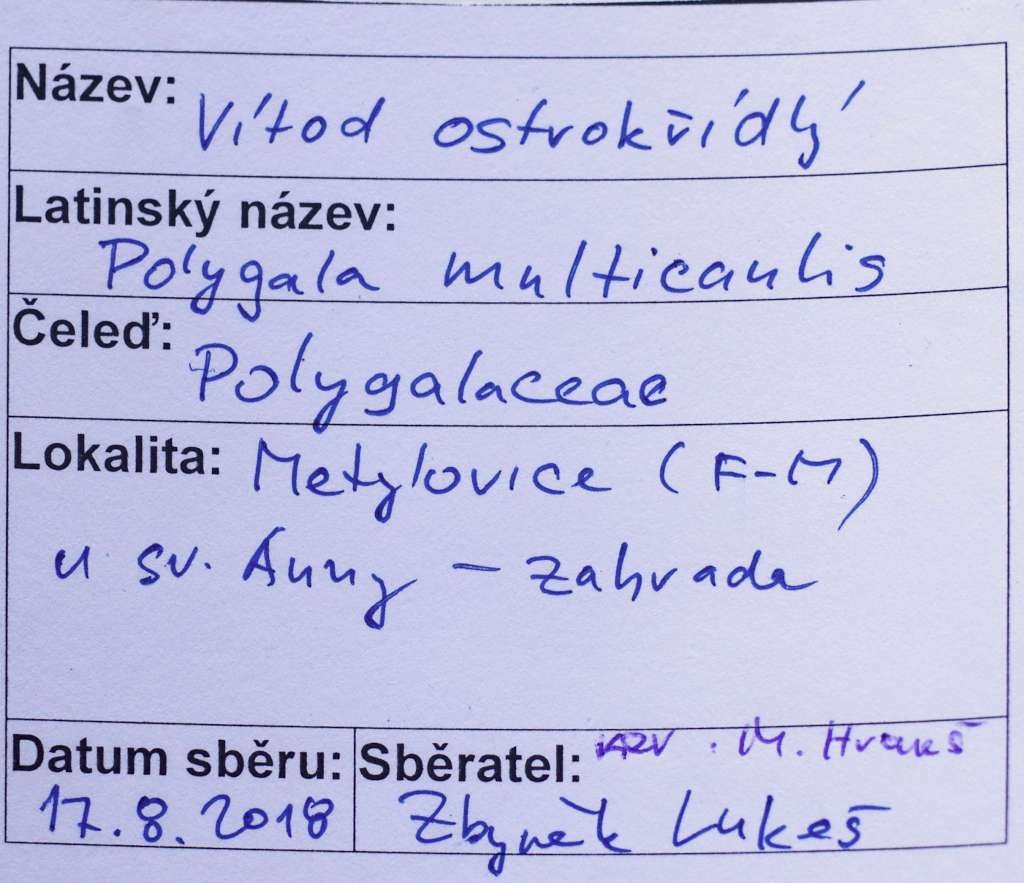 Název: Vítod ostrokřídlý
Latinský název:
Polygala multicaulis
Čeleď: Polygalaceae
Lokalita: Metylovice (F-M)
u sv. Anny - zahrada
Datum sběru:
17.8.2018
Sběratel: . M. Hroneš
Zbyněk Lukeš